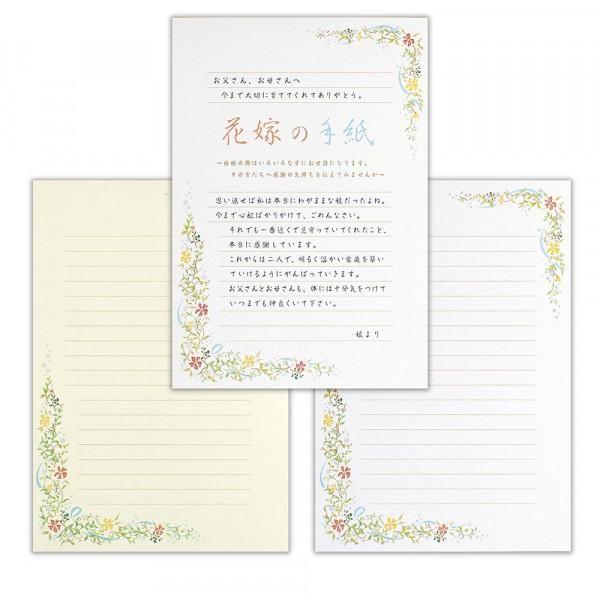 お父さん、お母さんへ
今まで大切に育ててくれてありがとう。
花嫁の手紙
～結婚の際はいろいろな方にお世話になります。
その方たちへ感謝の気持ちを伝えてみませんか～
思い返せば私は本当にわがままな娘だったよね。
今まで心配ばかりかけて、ごめんなさい。
それでも一番近くで見守っていてくれたこと、
本当に感謝しています。
これからは二人で、明るく温かい家庭を築い
ていけるようにがんばっていきます。
お父さんとお母さんも、体には十分気をつけて
いつまでも仲良くいて下さい。
娘より